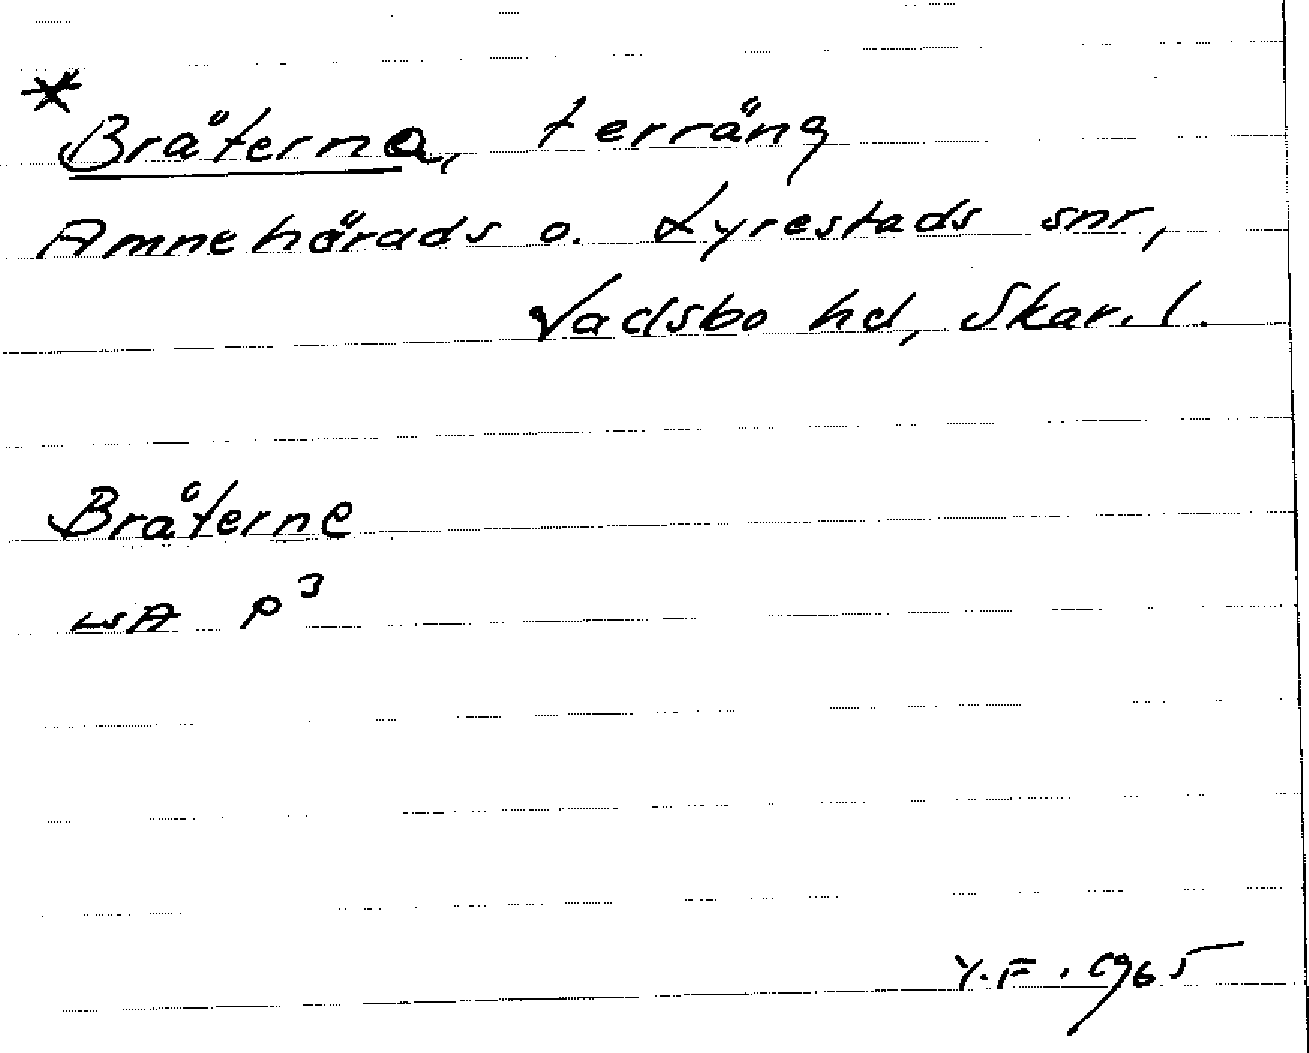 * Bråterna, terräng
Amnehärads o. Lyrestads snr,
Vadsbo hd, Skar. l.
Bråterne
LSA P³
Y.F. 1965